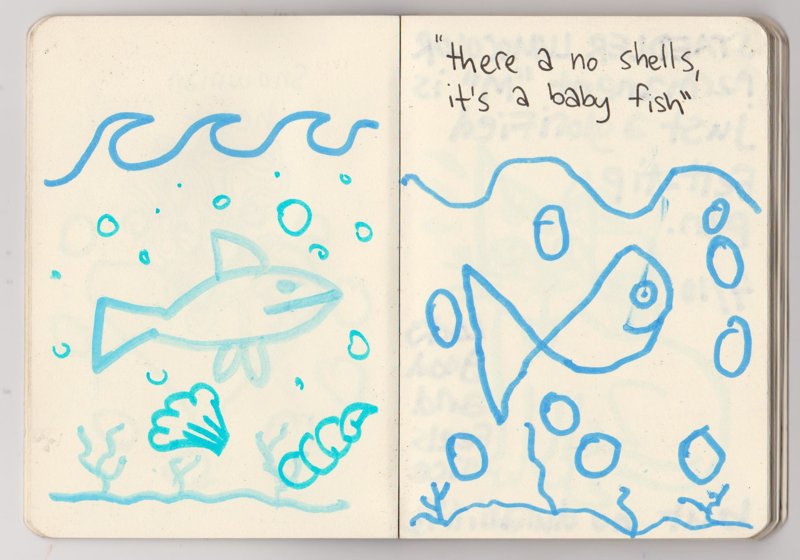 "there a no shells,
it's a baby fish"